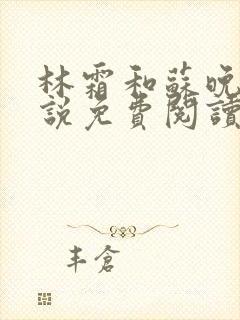 林霜和蘇晚
說免費閱讀
丰倉